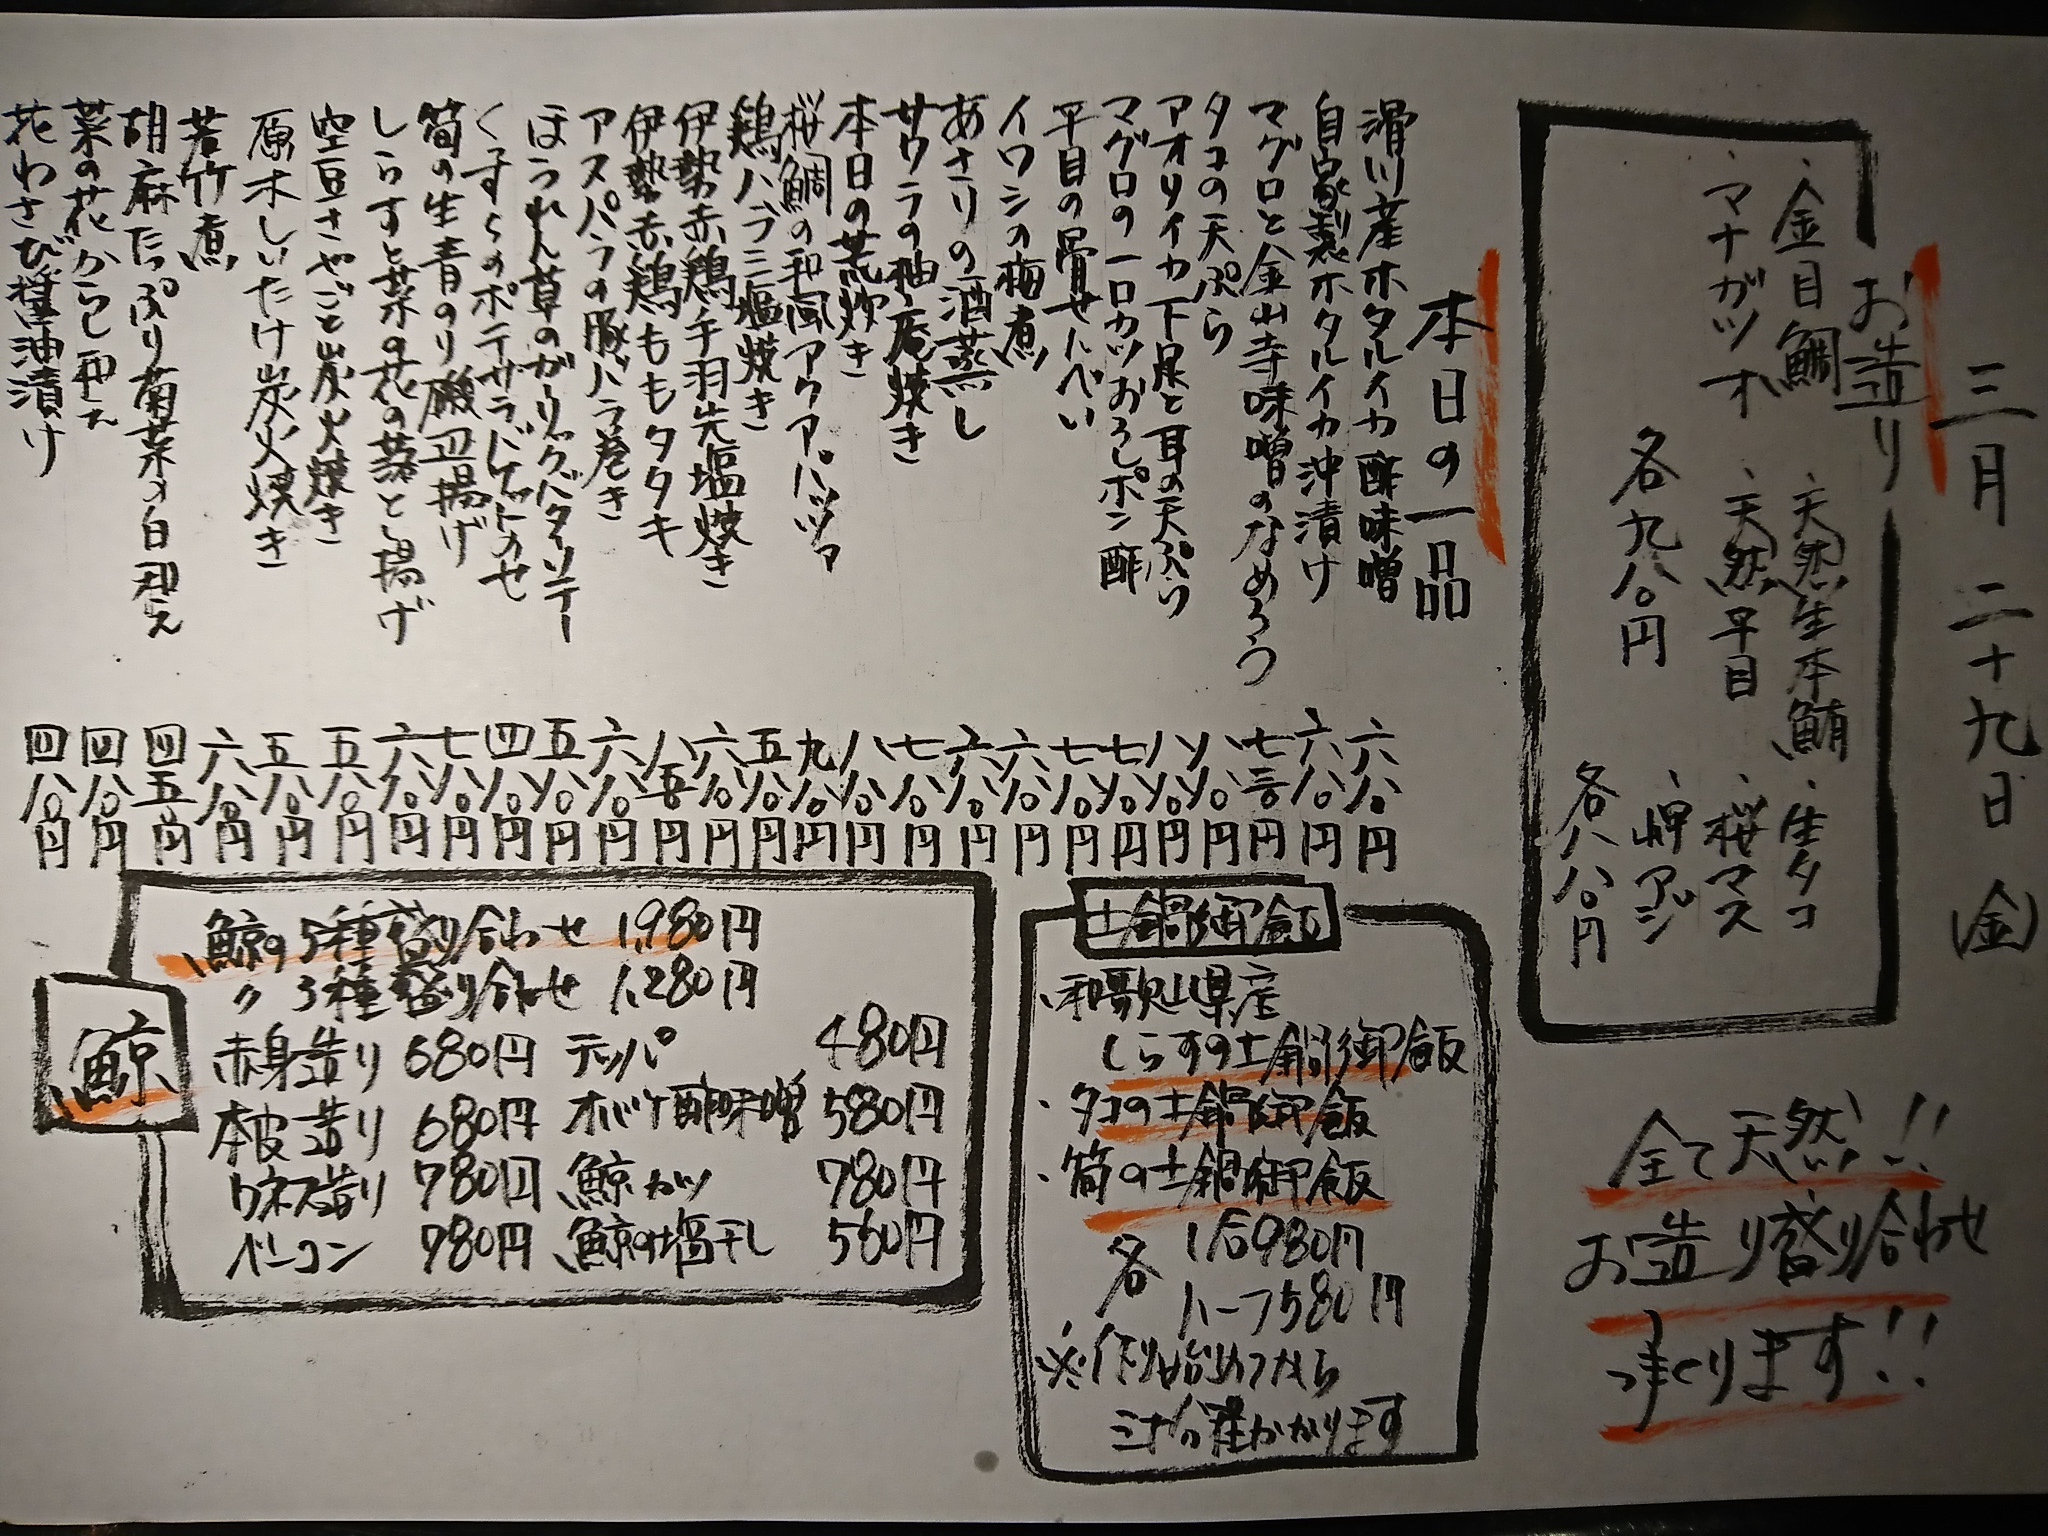 三月二十九日(金)
お造り
・金目鯛
・天然生本鮪
・生タコ
・マナガツオ
・天然平目
・桜マス
・岬アジ
各九八〇円
各八八〇円
全て天然!!
お造り盛り合わせ
承ります!!
本日の一品
滑川産ホタルイカ酢味噌 六八〇円
自家製ホタルイカ沖漬け 六八〇円
マグロと金山寺味噌のなめろう 七三〇円
タコの天ぷら 八八〇円
アオリイカ下足と耳の天ぷら 八八〇円
マグロの一口カツおろしポン酢 七八〇円
平目の骨せんべい 七八〇円
イワシの梅煮 六八〇円
あさりの酒蒸し 六八〇円
サワラの柚庵焼き 七八〇円
本日の荒炊き 八八〇円
桜鯛の和風アクアパッツァ 九八〇円
鶏ハラミ塩焼き 五八〇円
伊勢赤鶏手羽先塩焼き 六八〇円
伊勢赤鶏ももタタキ 八五〇円
アスパラの豚バラ巻き 六八〇円
ほうれん草のガーリックバターソテー 五八〇円
くずしのポテサラバケットのせ 四八〇円
筍の生青のり磯辺揚げ 七八〇円
しらすと菜の花の落とし揚げ 六八〇円
空豆さやごと炭火焼き 五八〇円
原木しいたけ炭火焼き 五八〇円
若竹煮 六八〇円
胡麻たっぷり菊菜の白和え 四五〇円
菜の花からし和え 四八〇円
花わさび醤油漬け 四八〇円
土鍋御飯
・和歌山県産
しらすの土鍋御飯
・タコの土鍋御飯
・筍の土鍋御飯
各 1合980円
ハーフ580円
※作り始めてから
三十分程かかります
鯨
鯨の5種盛り合わせ 1,980円
〃 3種盛り合わせ 1,280円
赤身造り 680円 テッパ 480円
本皮造り 680円 オバケ酢味噌 580円
ウネス造り 780円 鯨カツ 780円
ベーコン 980円 鯨の塩干し 560円